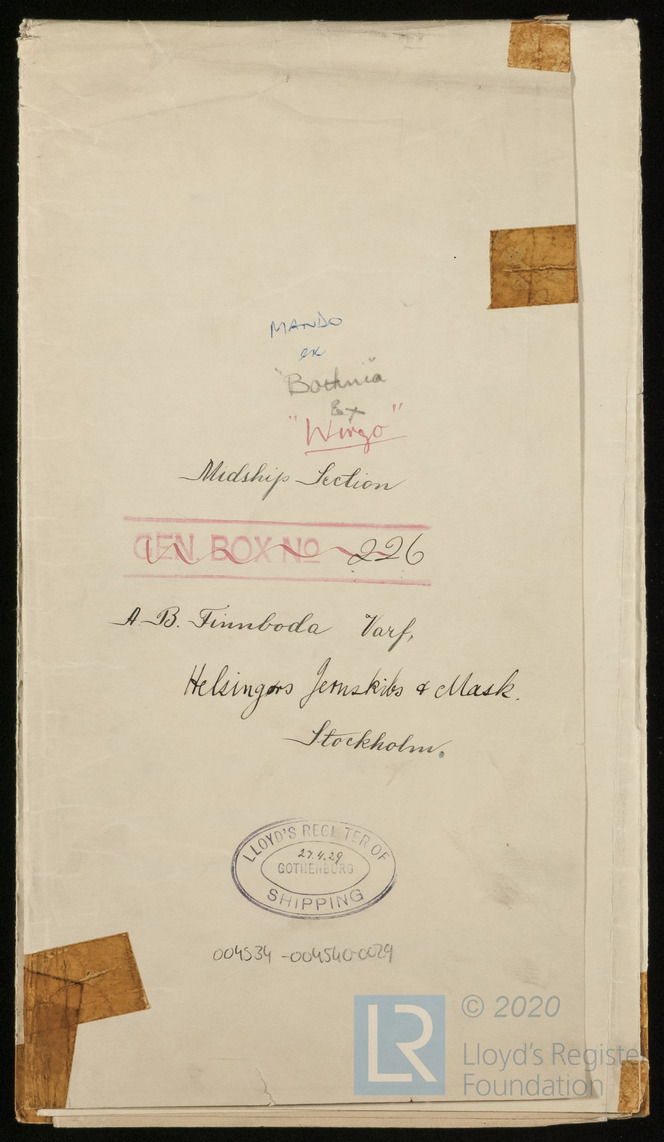 MANDO
ex
"Bothnia"
Ex
"Wirgo"
Midship Section
GEN. BOX No 226
A-B. Finnboda Varf,
Helsingørs Jernskibs & Mask.
Stockholm.
LLOYD'S REGISTER OF
27.4.29
GOTHENBURG
SHIPPING
004534-004540-0029
© 2020
LR
Lloyd's Registe
Foundation